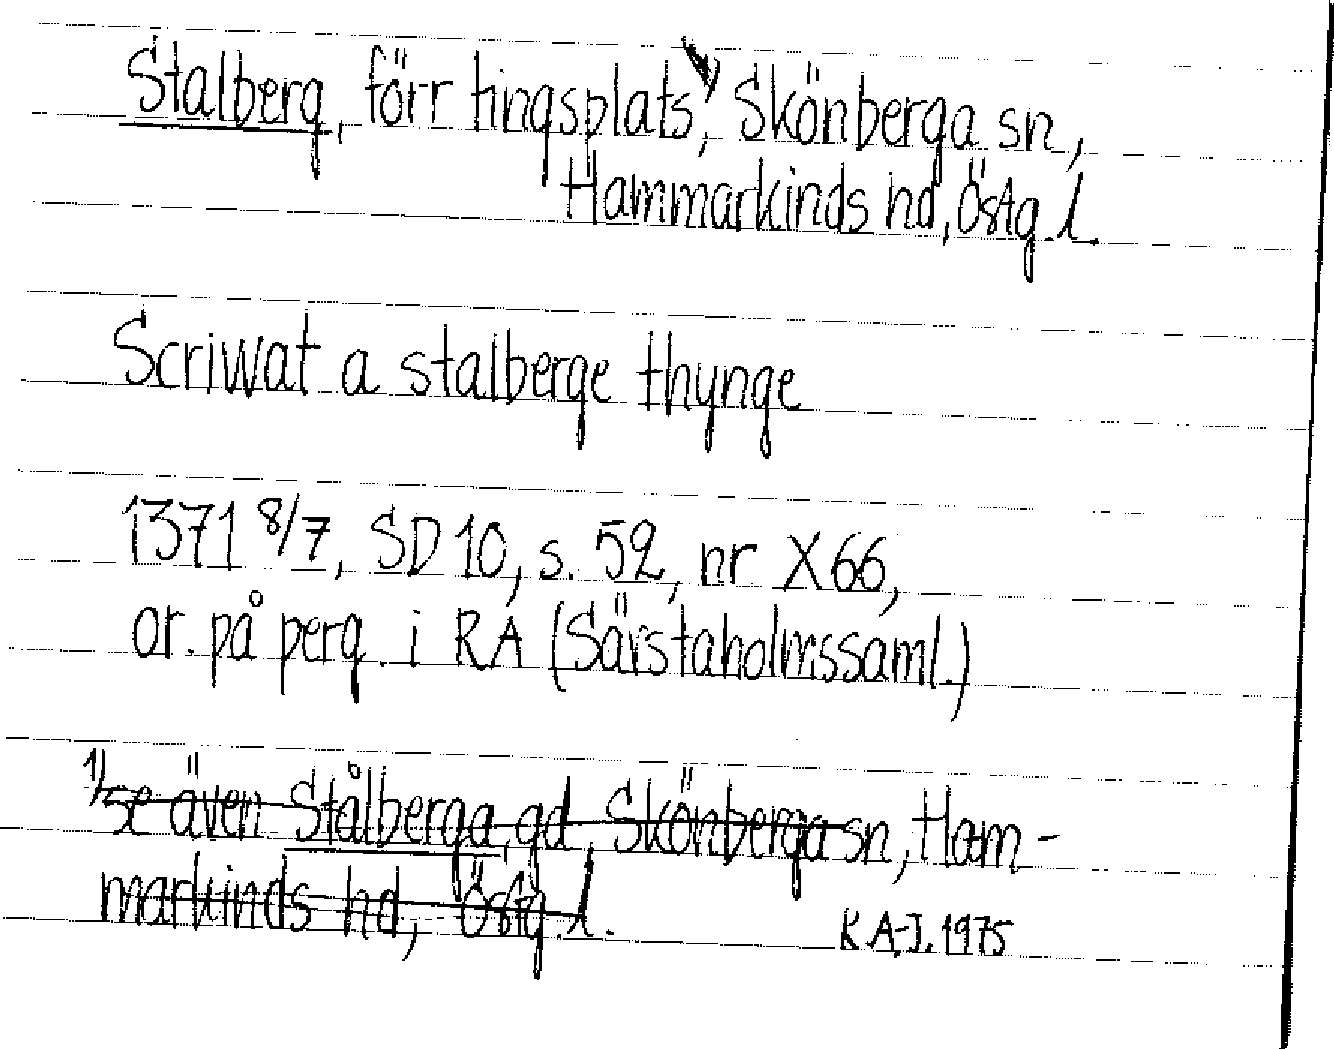 Stalberg, förr tingsplats, Skönberga sn,
Hammarkinds hd, Östg. l.
Scriwat a stalberge thynge
1371 8/7, SD 10, s. 52, nr X 66,
or. på perg. i RA (Sävstaholmssaml.)
1/ se även Stålberga gd Skönberga sn, Ham-
markinds hd, Östg. l.
K A-J. 1975